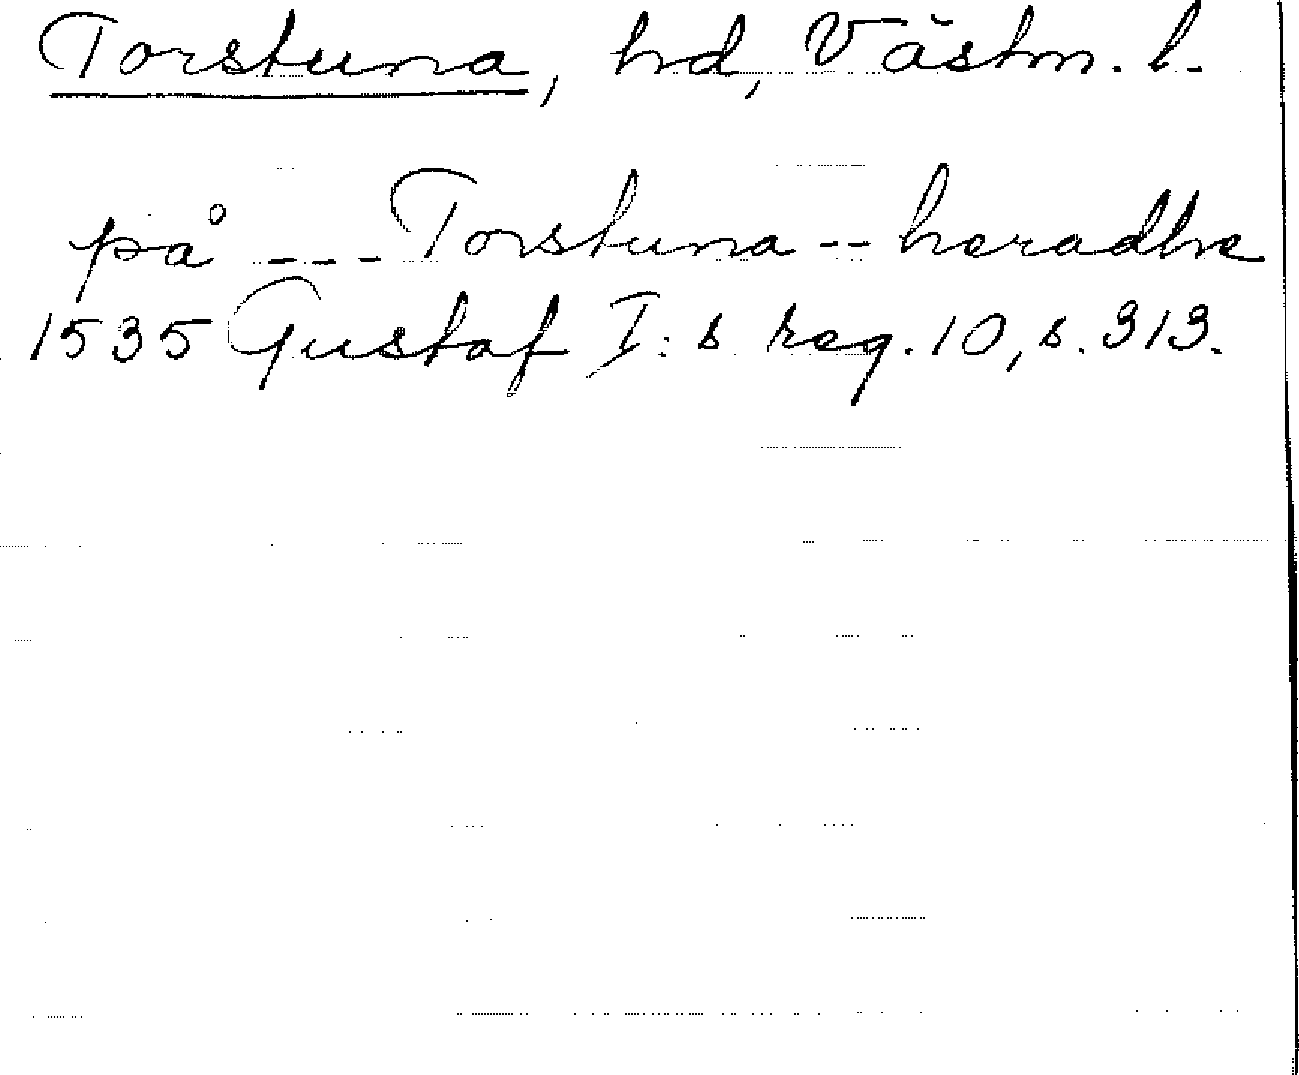 Torstuna, hd, Västm. l.
på --- Torstuna -- heradhe
1535 Gustaf I:s reg. 10, s. 313.